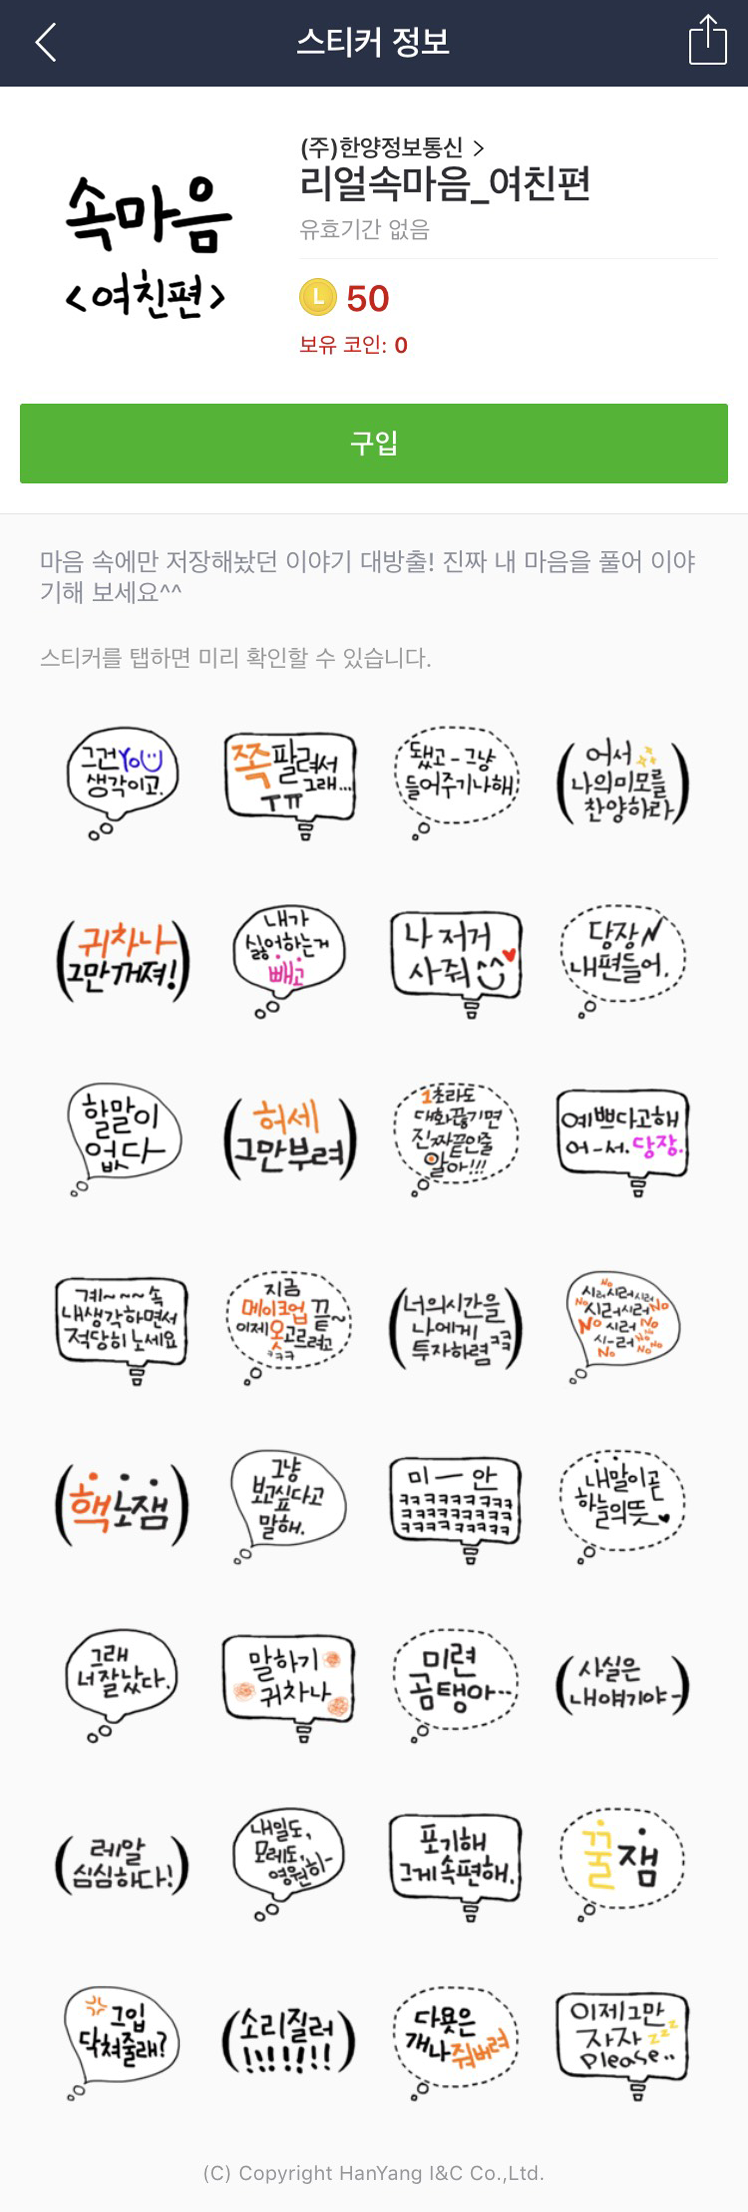 스티커 정보
(주)한양정보통신 >
리얼속마음_여친편
유효기간 없음
속마음
<여친편>
L 50
보유 코인: 0
구입
마음 속에만 저장해놨던 이야기 대방출! 진짜 내 마음을 풀어 이야
기해 보세요^^
스티커를 탭하면 미리 확인할 수 있습니다.
그건 YOU
생각이고.
쪽팔려서
그래...
ㅠㅠ
됐고-그냥
들어주기나해
(어서
나의미모를
찬양하라)
(귀차나
그만꺼져!)
내가
싫어하는거
빼고
나 저거
사줘^^
당장
내편들어.
할말이
없다
(허세
그만부려)
1초라도
대화끊기면
진짜끝인줄
알아!!!
예쁘다고해
어-서. 당장.
계~~~속
내생각하면서
적당히 노세요
지금
메이크업 끝~
이제 옷고르려고
ㅋㅋㅋ
(너의시간을
나에게
투자하렴 ㅋㅋㅋ)
No
시러시러시러
No 시러시러 No
No 시러 No
시-러 No
No No No
(핵노잼)
그냥
보고싶다고
말해.
미 ー 안
ㅋㅋㅋㅋㅋㅋㅋㅋ
ㅋㅋㅋㅋㅋㅋㅋㅋ
ㅋㅋㅋㅋㅋㅋㅋㅋ
내말이곧
하늘의뜻
그래
너잘났다.
말하기
귀차나
미련
곰탱아...
(사실은
내얘기야-)
(레알
심심하다!)
내일도,
모레도,
영원히-
포기해
그게속편해.
꿀잼
그입
닥쳐줄래?
(소리질러
!!!!!!!)
다욧은
개나줘버려
이제그만
자자 zzz
please..
(C) Copyright HanYang I&C Co.,Ltd.